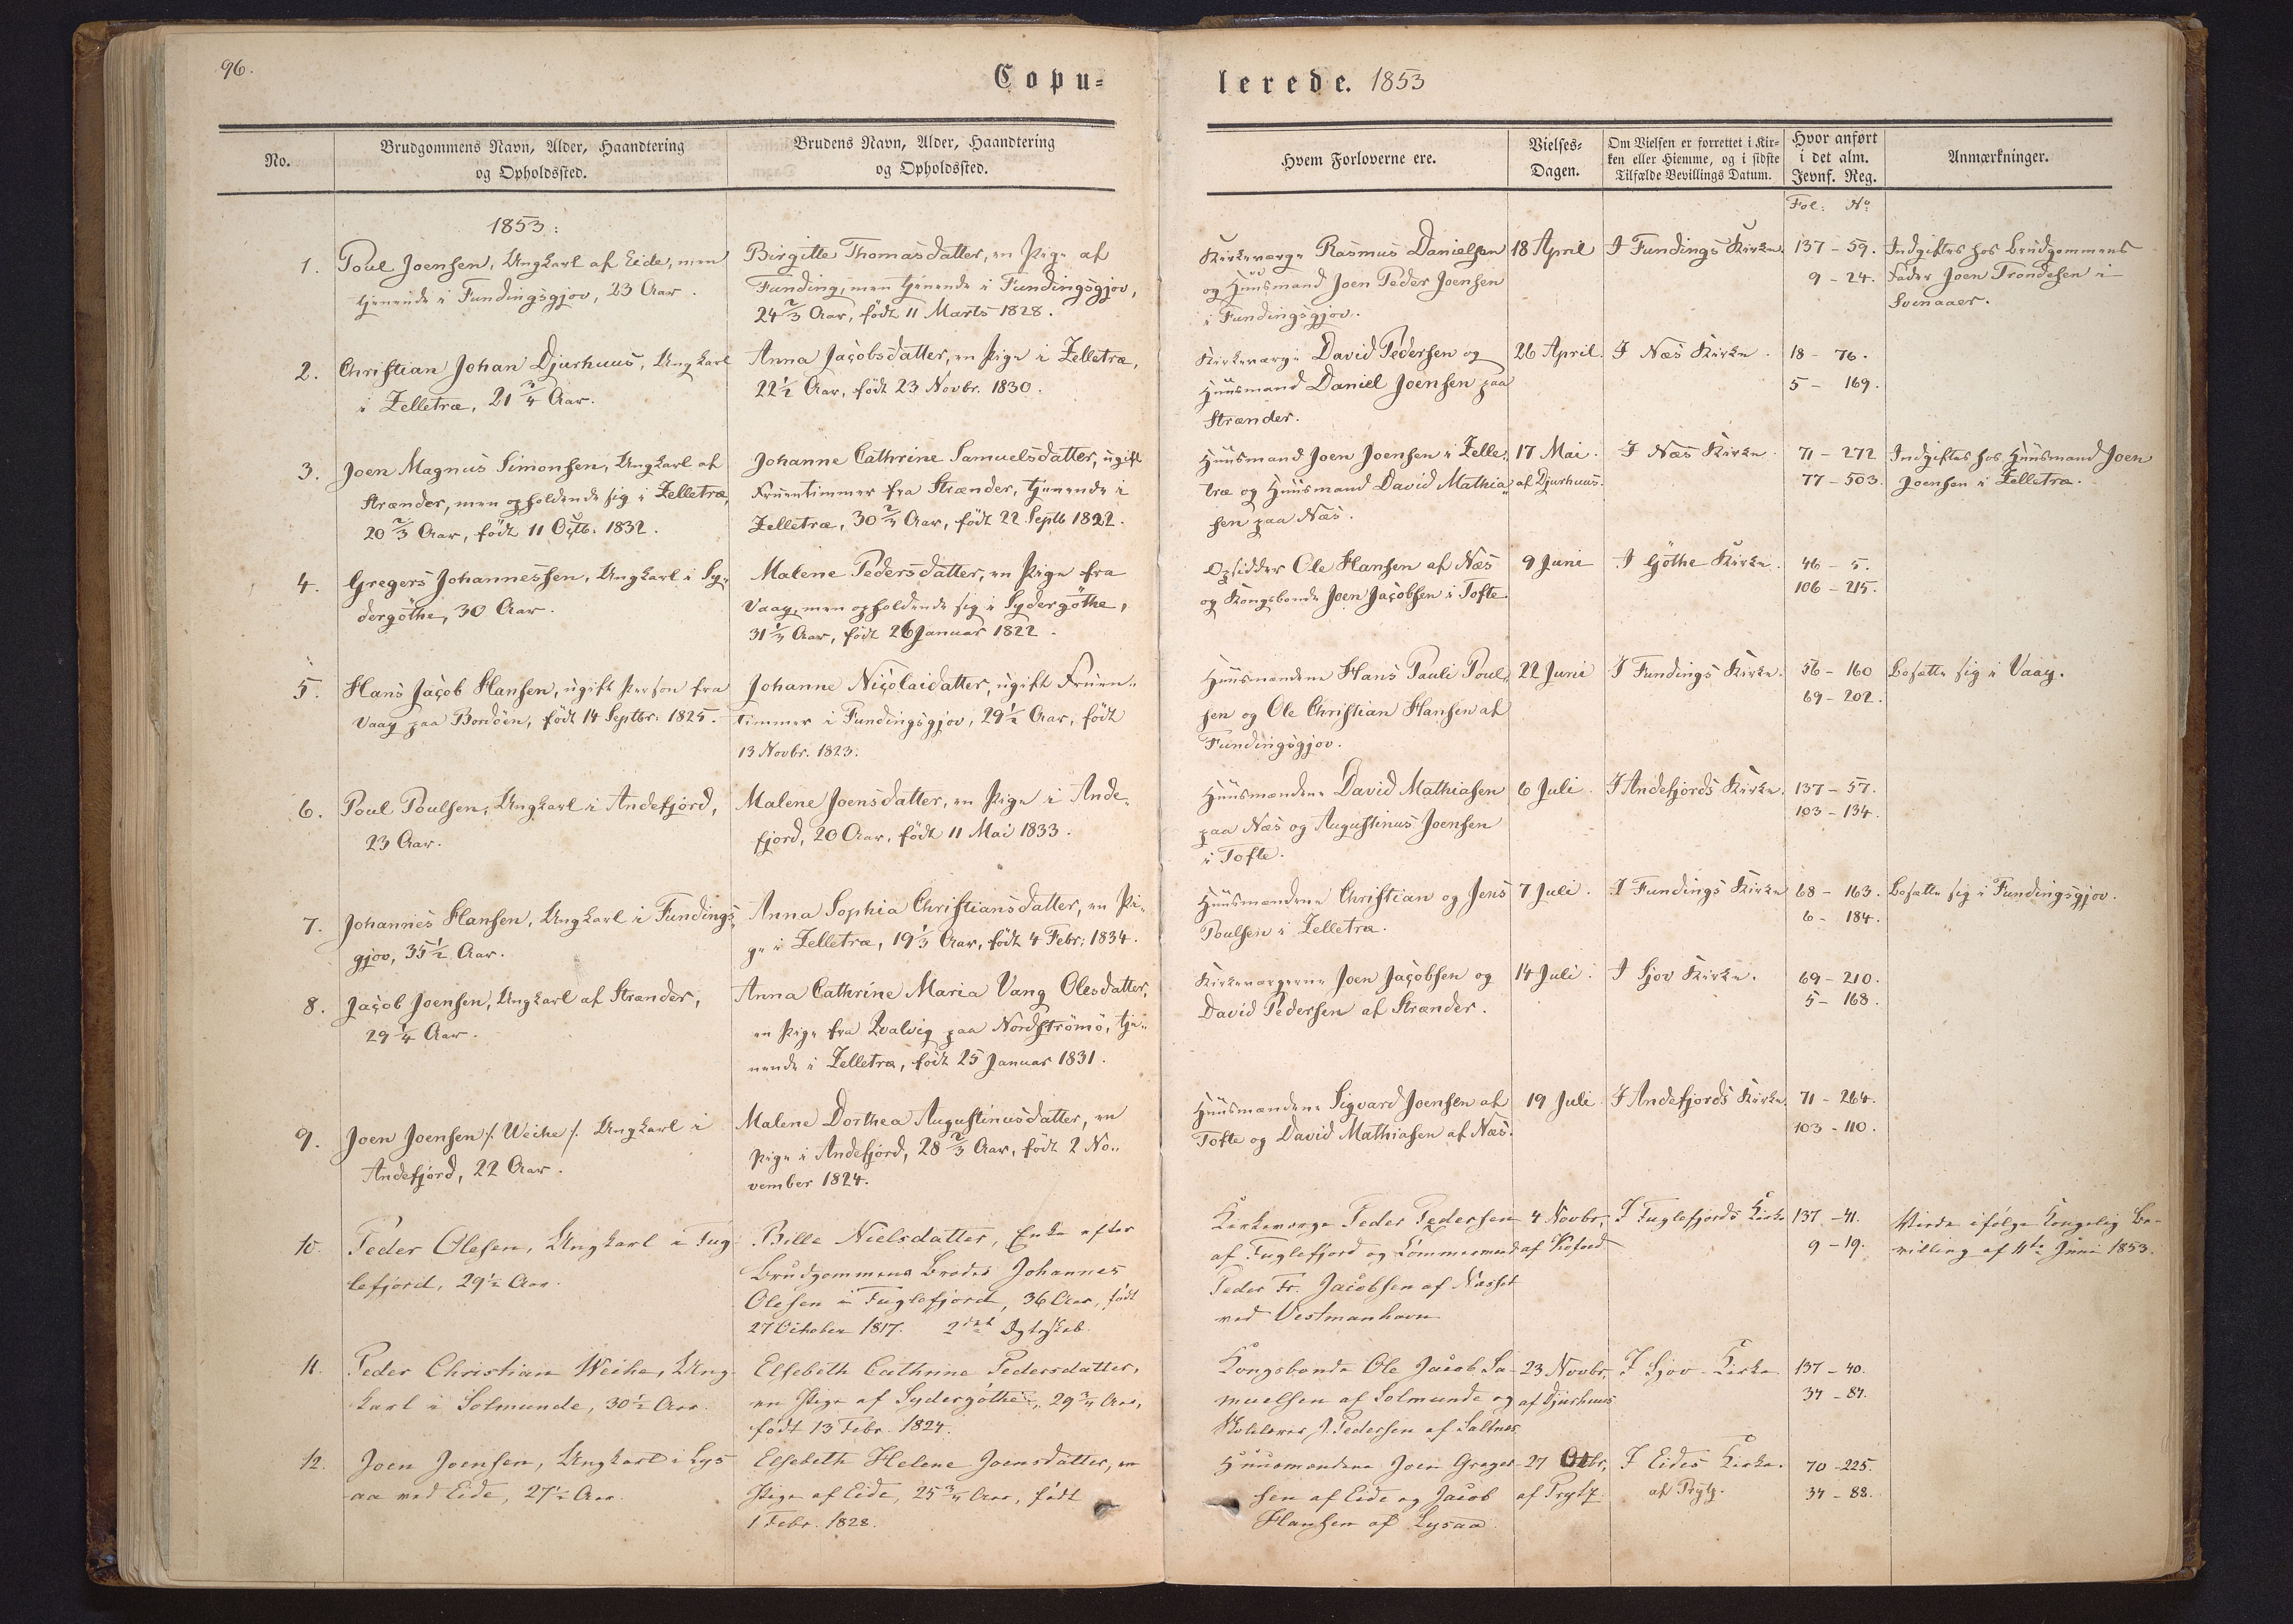 96.
Copu=
No.
Brudgommens Navn, Alder, Haandtering
og Opholdssted.
Brudens Navn, Alder, Haandtering
og Opholdssted.
1853:
1.
Poul Joensen, Ungkarl af Eide, men
tjenende i Fundingsgjov, 23 Aar.
Birgitte Thomasdatter, en Pige af
Funding, men tjenende i Fundingsgjov,
24 2/3 Aar, født 11 Marts 1828.
2.
Christian Johan Djurhuus, Ungkarl
i Zelletræ, 21 3/4 Aar.
Anna Jacobsdatter, en Pige i Zelletræ,
22 1/2 Aar, født 23 Novbr. 1830.
3.
Joen Magnus Simonsen, Ungkarl af
Strænder, men opholdende sig i Zelletræ,
20 2/3 Aar, født 11 Octb. 1832.
Johanne Cathrine Samuelsdatter, ugift
Fruentimmer fra Strænder, tjenende i
Zelletræ, 30 2/3 Aar, født 22 Septb 1822.
4.
Gregers Johannessen, Ungkarl i Sy-
dergöthe, 30 Aar.
Malene Pedersdatter, en Pige fra
Vaag, men opholdende sig i Sydergöthe,
31 1/3 Aar, født 26 Januar 1822.
5.
Hans Jacob Hansen, ugift Person fra
Vaag paa Bordöen, født 14 Septbr: 1825.
Johanne Nicolaidatter, ugift Fruen-
timmer i Fundingsgjov, 29 1/2 Aar, født
13 Novbr. 1823.
6.
Poul Poulsen, Ungkarl i Andefjord,
23 Aar.
Malene Joensdatter, en Pige i Ande-
fjord, 20 Aar, født 11 Mai 1833.
7.
Johannes Hansen, Ungkarl i Fundings-
gjov, 35 1/2 Aar.
Anna Sophia Christiansdatter, en Pi-
ge i Zelletræ, 19 1/3 Aar, født 4 Febr: 1834.
8.
Jacob Joensen, Ungkarl af Strænder,
29 1/4 Aar.
Anna Cathrine Maria Vang Olesdatter,
en Pige fra Qvalvig paa Nordströmö, tje-
nende i Zelletræ, født 25 Januar 1831.
9.
Joen Joensen /: Weihe /: Ungkarl i
Andefjord, 22 Aar.
Malene Dorthea Augustinusdatter, en
Pige i Andefjord, 28 2/3 Aar, født 2 No-
vember 1824.
10.
Peder Olesen, Ungkarl i Fug-
lefjord, 29 1/2 Aar.
Bille Nielsdatter, Enke efter
Brudgommens Broder Johannes
Olesen i Fuglefjord, 36 Aar, født
27 October 1817. 2det Ægteskab.
11.
Peder Christian Weihe, Ung-
karl i Solmunde, 30 1/2 Aar.
Elsebeth Cathrine Pedersdatter,
en Pige af Sydergöthe, 29 3/4 Aar,
født 13 Febr. 1824.
12.
Joen Joensen, Ungkarl i Lys-
aa ved Eide, 27 1/2 Aar.
Elsebeth Helene Joensdatter, en
Pige af Eide, 25 3/4 Aar, født
1 Febr. 1828.
lerede. 1853
Hvem Forloverne ere.
Vielses-
Dagen.
Om Vielsen er forrettet i Kir-
ken eller Hiemme, og i sidste
Tilfælde Bevillings Datum.
Hvor anført
i det alm.
Jevnf. Reg.
Anmærkninger.
Fol: No
Kirkeværge Rasmus Danielsen
og Huusmand Joen Peder Joensen
i Fundingsgjov.
18 April
I Fundings Kirke.
137 - 59.
9 - 24.
Indgiftes hos Brudgommens
Fader Joen Trondesen i
Svinaaer.
Kirkeværge David Pedersen og
Huusmand Daniel Joensen paa
Strænder.
26 April.
I Næs Kirke.
18 - 76.
5 - 169.
Huusmand Joen Joensen i Zelle-
træ og Huusmand David Mathia-
sen paa Næs.
17 Mai.
af Djurhuus.
I Næs Kirke.
71 - 272
77 - 503.
Indgiftes hos Huusmand Joen
Joensen i Zelletræ.
Opsidder Ole Hansen af Næs
og Kongsbonde Joen Jacobsen i Tofte.
9 Juni
I Göthe Kirke.
46 - 5.
106 - 215.
Huusmændene Hans Pauli Poul-
sen og Ole Christian Hansen af
Fundingsgjov.
22 Juni
I Fundings Kirke.
56 - 160
69 - 202.
Bosætte sig i Vaag.
Huusmændene David Mathiasen
paa Næs og Augustinus Joensen
i Tofte.
6 Juli.
I Andefjords Kirke.
137 - 57.
103 - 134.
Huusmændene Christian og Jens
Poulsen i Zelletræ.
7 Juli.
I Fundings Kirke
68 - 163.
6 - 184.
Bosætte sig i Fundingsgjov.
Kirkeværgerne Joen Jacobsen og
David Pedersen af Strænder.
14 Juli.
I Sjov Kirke.
69 - 210.
5 - 168.
Huusmændene Sigvard Joensen af
Tofte og David Mathiasen af Næs.
19 Juli
I Andefjords Kirke.
71 - 264.
103 - 110.
Kirkeværge Peder Pedersen
af Fuglefjord og Tømmermand
Peder Fr. Jacobsen af Næsset
ved Vestmanhavn
4 Novbr,
af Kofoed
I Fuglefjords Kirke
137 - 41.
9 - 19.
Viede ifølge Kongelig Be-
villing af 11te Juni 1853.
Kongsbonde Ole Jacob Sa-
muelsen af Solmunde og
Skolelærer J. Pedersen af Saltnæs
23 Novbr,
af Djurhuus
I Sjov Kirke
137 - 40.
34 - 87.
Huusmændene Joen Greger-
sen af Eide og Jacob
Hansen af Lysaa.
27 Octbr,
af Prytz
I Eides Kirke.
af Prytz.
70 - 225.
34 - 88.